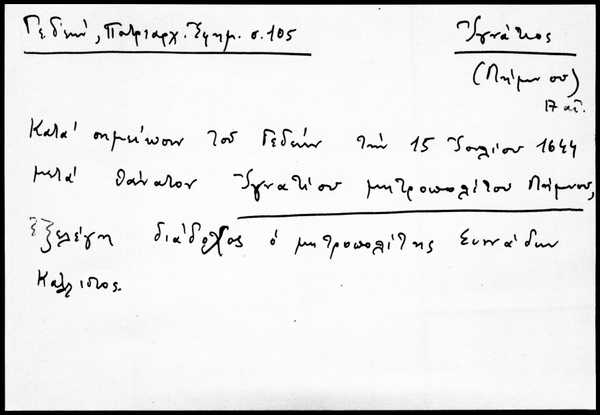 Γεδεών, Πατριαρχ. Εφημ. σ. 105
Ἰγνάτιος
(Λήμνου)
17 αἰ.
Κατά σημείωσιν τοῦ Γεδεών τήν 15 Ἰουλίου 1644
μετά θάνατον Ἰγνατίου μητροπολίτου Λήμνου,
ἐξελέγη διάδοχος ὁ μητροπολίτης Συνάδων
Κάλλιστος.